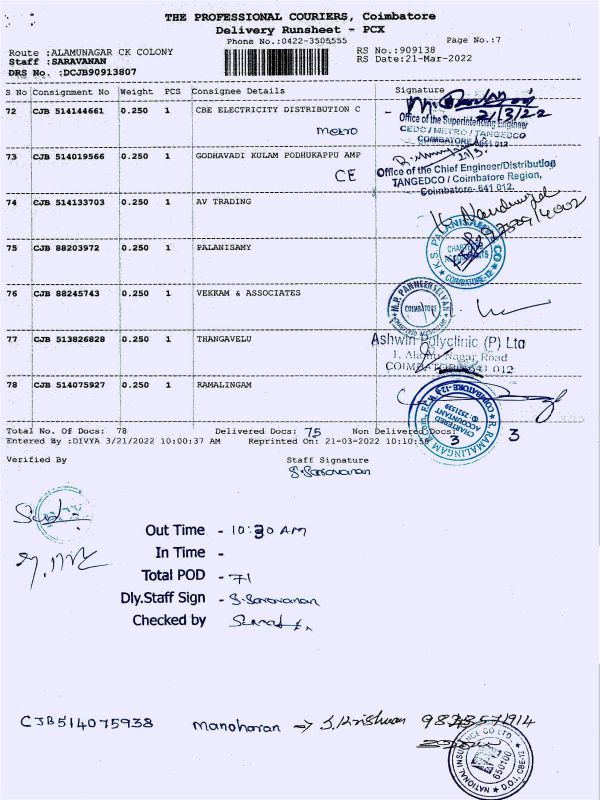 THE PROFESSIONAL COURIERS, Coimbatore
Delivery Runsheet - PCX
Phone No.:0422-3505555 Page No.:7
Route :ALAMUNAGAR CK COLONY RS No.:909138
Staff :SARAVANAN RS Date:21-Mar-2022
DRS No. :DCJB90913807
S No Consignment No Weight PCS Consignee Details Signature
72 CJB 514144661 0.250 1 CBE ELECTRICITY DISTRIBUTION C
21/3/22
Office of the Superintending Engineer
Metro CEDC / METRO / TANGEDCO
COIMBATORE
73 CJB 514019566 0.250 1 GODHAVADI KULAM PODHUKAPPU AMP
CE Office of the Chief Engineer/Distribution
TANGEDCO / Coimbatore Region,
Coimbatore- 641 012.
74 CJB 514133703 0.250 1 AV TRADING
75 CJB 88203972 0.250 1 PALANISAMY
K.S. PALANISAMY & CO
COIMBATORE-12
76 CJB 88245743 0.250 1 VEKKAM & ASSOCIATES
M.P. PANNEERSELVAN
COIMBATORE
77 CJB 513826828 0.250 1 THANGAVELU
Ashwin Polyclinic (P) Ltd
1, Alamu Nagar Road
COIMBATORE-641 012
78 CJB 514075927 0.250 1 RAMALINGAM
R. RAMALINGAM
CHARTERED ACCOUNTANT
Total No. Of Docs: 78 Delivered Docs: 75 Non Delivered Docs: 3 3
Entered By :DIVYA 3/21/2022 10:00:37 AM Reprinted On: 21-03-2022 10:10:58
Verified By Staff Signature
S.Saravanan
Out Time - 10:30 AM
In Time -
Total POD - 71
Dly.Staff Sign - S.Saravanan
Checked by
CJB514075938 Manoharan → S.Krishnan
NATIONAL INSURANCE CO LTD.
650100
D.O.I, CBE-12